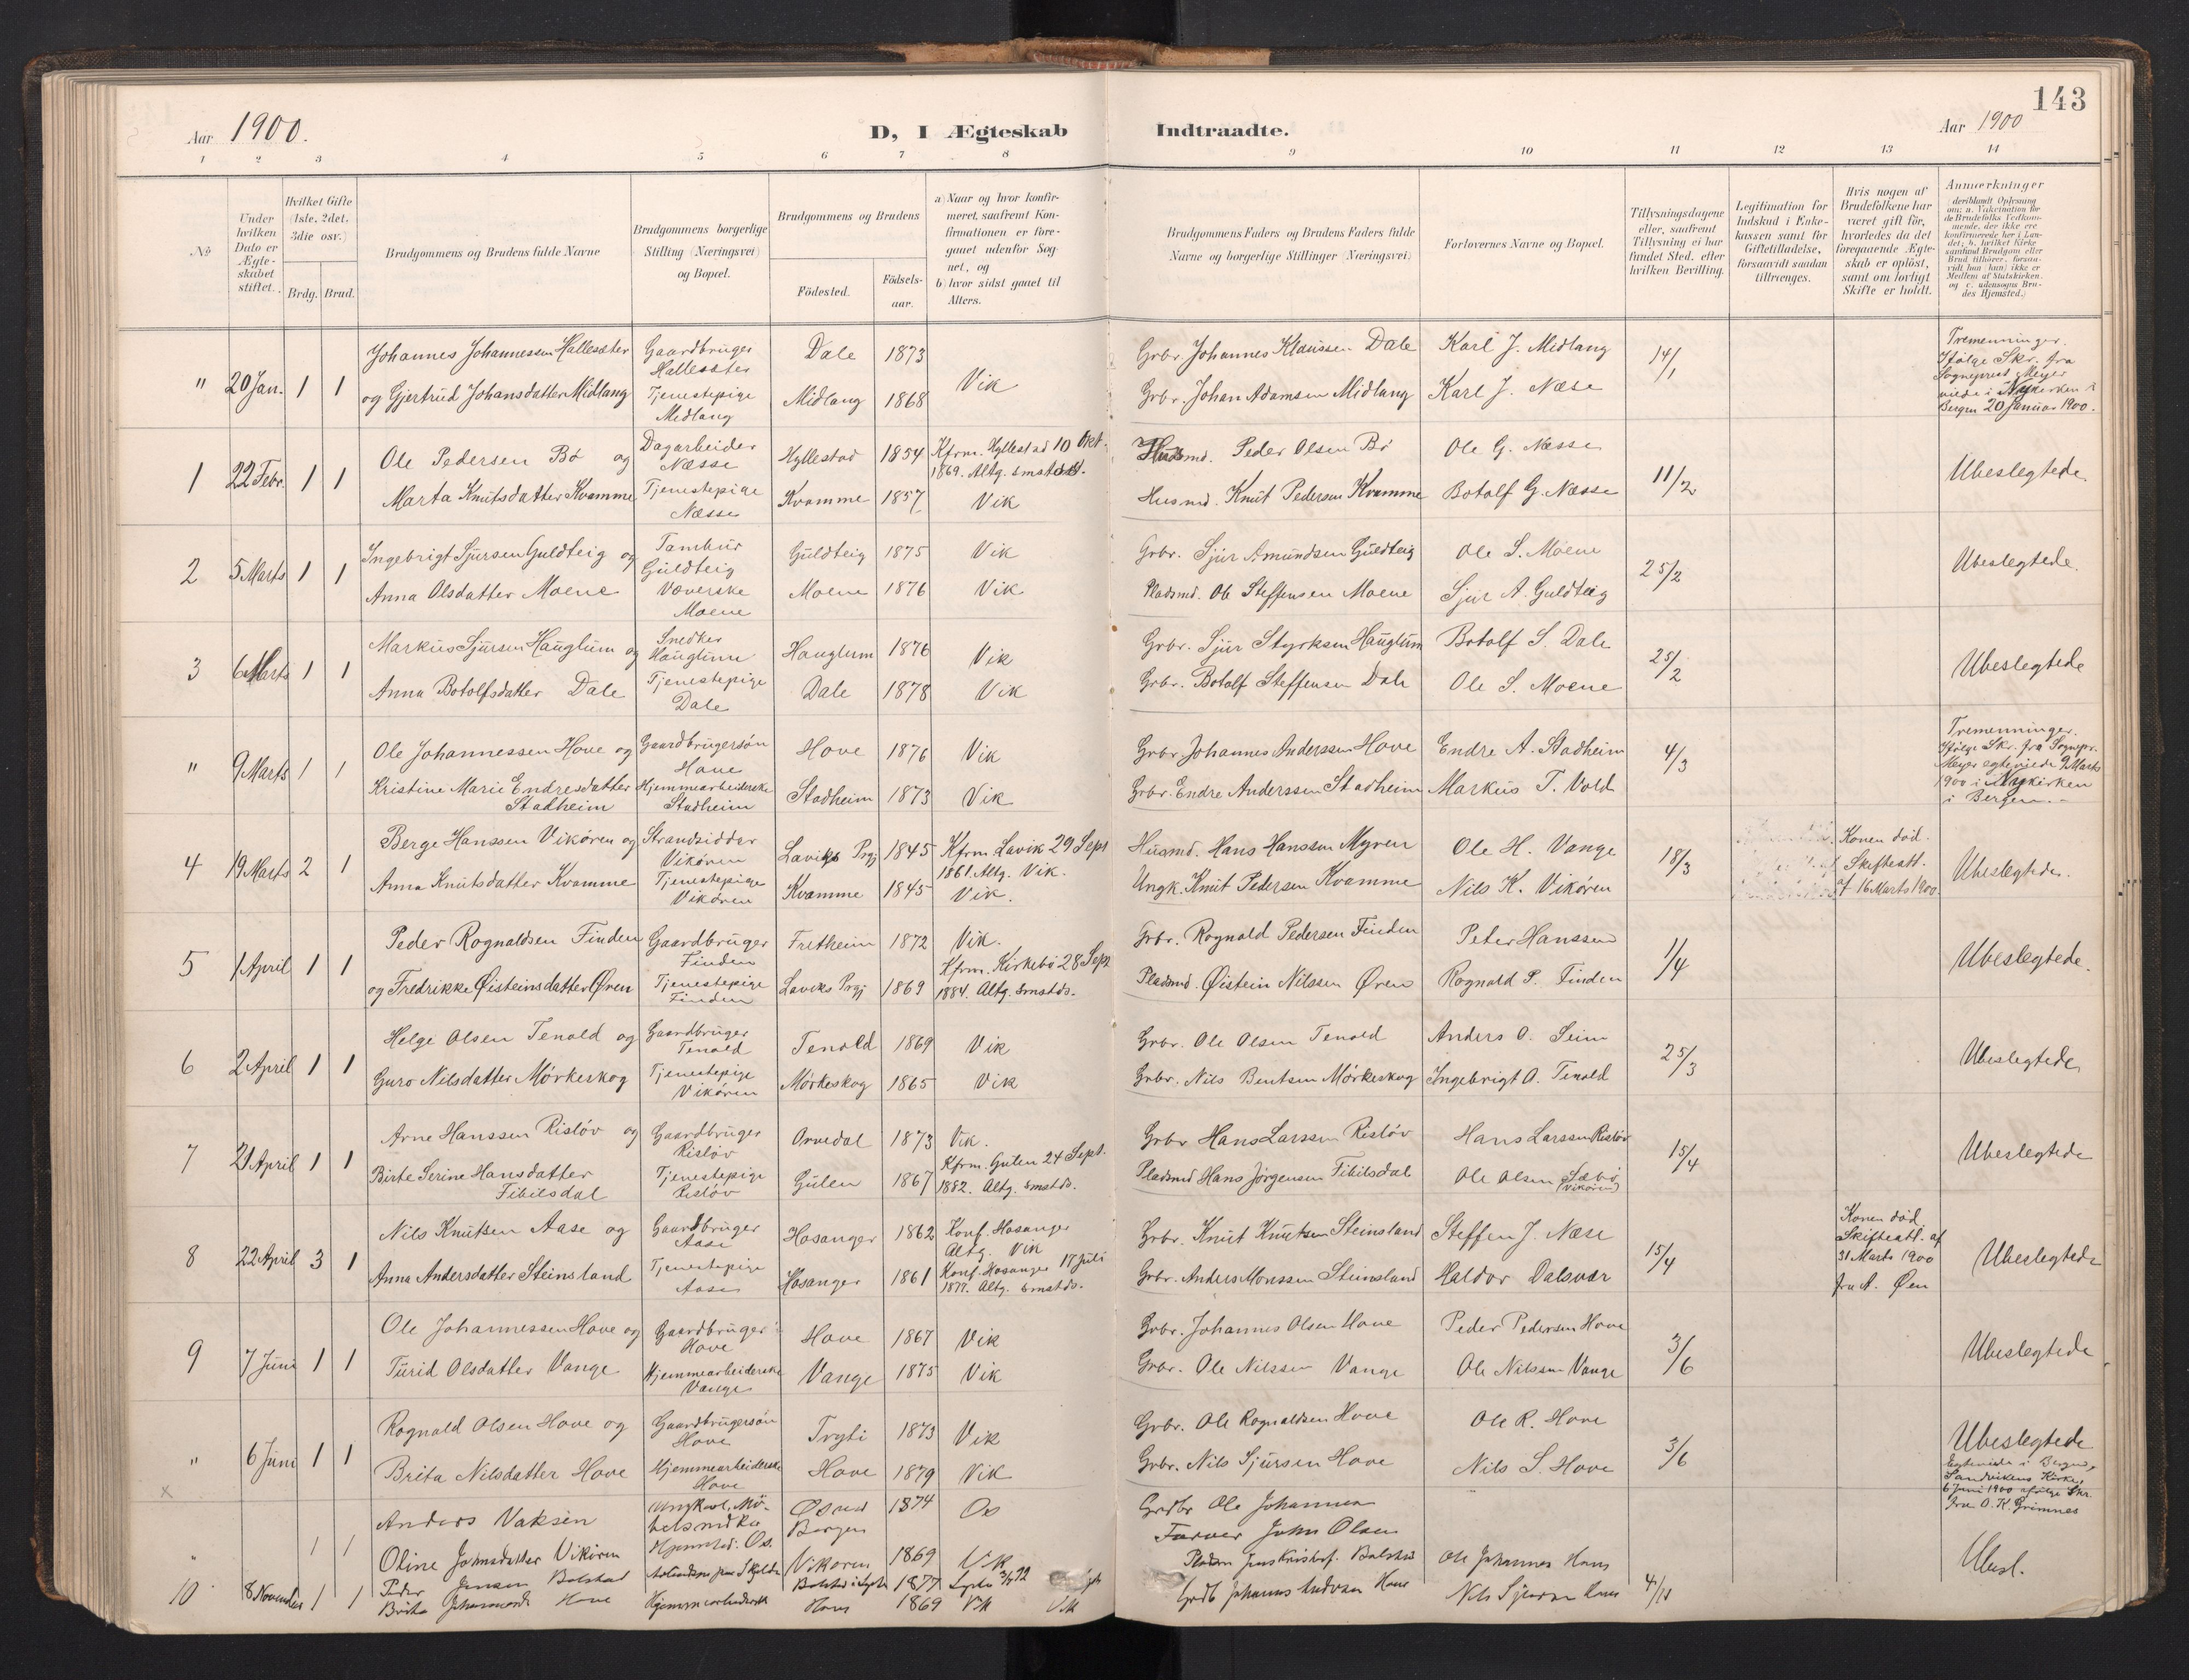 143
Aar 1900.
D, I Ægteskab Indtraadte.
Aar 1900
1 2 3 4 5 6 7 8 9 10 11 12 13 14
No
Under hvilken Dato er Ægteskabet stiftet.
Hvilket Gifte (1ste, 2det, 3die osv.)
Brdg. Brud.
Brudgommens og Brudens fulde Navne
Brudgommens borgerlige Stilling (Næringsvei) og Bopæl.
Brudgommens og Brudens
Födested.
Födselsaar.
a) Naar og hvor konfirmeret, saafremt Konfirmationen er foregaaet udenfor Sognet, og
b) hvor sidst gaaet til Alters.
Brudgommens Faders og Brudens Faders fulde Navne og borgerlige Stillinger (Næringsvei)
Forlovernes Navne og Bopæl.
Tillysningsdagene eller, saafremt Tillysning ei har fundet Sted, efter hvilken Bevilling.
Legitimation for Indskud i Enkekassen samt for Giftetilladelse, forsaavidt saadan tiltrænges.
Hvis nogen af Brudefolkene har været gift før, hvorledes da det foregaaende Ægteskab er oplöst, samt om lovligt Skifte er holdt.
Anmærkninger (deriblandt Oplysning om: a. Vakcination for de Brudefolks Vedkommende, der ikke ere konfirmerede her i Landet; b. hvilket Kirkesamfund Brudgom eller Brud tilhører, forsaavidt han (hun) ikke er Medlem af Statskirken, og c. udensogns Brudes Hjemsted.)
" 20 Jan. 1 1
Johannes Johannessen Hallesæter Gaardbruger Hallesæter Dale 1873 Grbr. Johannes Klaussen Dale Karl J. Midlang
og Gjertrud Johansdatter Midlang Tjenestepige Midlang Midlang 1868 Vik Grbr. Johan Adamsen Midlang Karl J. Næse
14/1
Tremenninger. Ifølge Skr. fra Sogneprest Meyer viede i Nykirken i Bergen 20 Januar 1900.
1 22 Febr. 1 1
Ole Pedersen Bø og Dagarbeider Næsse Hyllestad 1854 Kfrm. Hyllestad 10 Okt. 1869. Altg. smstds. Husmd. Peder Olsen Bø Ole G. Næsse
Marta Knutsdatter Kvamme Tjenestepige Næsse Kvamme 1857 Vik Husmd. Knut Pedersen Kvamme Botolf G. Næsse
11/2
Ubeslegtede.
2 5 Marts 1 1
Ingebrigt Sjursen Guldteig og Tambur Guldteig Guldteig 1875 Vik Grbr. Sjur Amundsen Guldteig Ole S. Moene
Anna Olsdatter Moene Væverske Moene Moene 1876 Vik Pladsmd. Ole Steffensen Moene Sjur A. Guldteig
25/2
Ubeslegtede.
3 6 Marts 1 1
Markus Sjursen Hauglum og Snedker Hauglum Hauglum 1876 Vik Grbr. Sjur Styrksen Hauglum Botolf S. Dale
Anna Botolfsdatter Dale Tjenestepige Dale Dale 1878 Vik Grbr. Botolf Steffensen Dale Ole S. Moene
25/2
Ubeslegtede
" 9 Marts 1 1
Ole Johannessen Hove og Gaardbrugersøn Hove Hove 1876 Vik Grbr. Johannes Anderssen Hove Endre A. Stadheim
Kristine Marie Endresdatter Stadheim Hjemmearbeiderske Stadheim Stadheim 1873 Vik Grbr. Endre Anderssen Stadheim Markus T. Vold
4/3
Tremenninger. Ifølge Skr. fra Sognepr. Meyer egteviede 9 Marts 1900 i Nykirken i Bergen.
4 19 Marts 2 1
Berge Hanssen Vikøren og Strandsidder Vikøren Laviks Prgj 1845 Kfrm Lavik 29 Sept 1861 Altg. Vik. Husmd. Hans Hanssen Myren Ole H. Vange
Anna Knutsdatter Kvamme Tjenestepige Vikøren Kvamme 1845 Vik. Ungk. Knut Pedersen Kvamme Nils K. Vikøren
18/3
Konen död. Skifteatt. af 16 Marts 1900.
Ubeslegtede.
5 1 April 1 1
Peder Rognaldsen Finden Gaardbruger Finden Fretheim 1872 Vik. Grbr. Rognald Pedersen Finden Peter Hanssen
og Fredrikke Øisteinsdatter Øren Tjenestepige Finden Laviks Prgj 1869 Kfrm. Kirkebö 28 Sept 1884. Altg. smstds. Pladsmd. Øistein Nilssen Øren Rognald P. Finden
1/4
Ubeslegtede.
6 2 April 1 1
Helge Olsen Tenold og Gaardbruger Tenold Tenold 1869 Vik Grbr. Ole Olsen Tenold Anders O. Seim
Guro Nilsdatter Mörkeskog Tjenestepige Vikøren Mörkeskog 1865 Vik Grbr. Nils Bentsen Mörkeskog Ingebrigt O. Tenold
25/3
Ubeslegtede
7 21 April 1 1
Arne Hanssen Risløv og Gaardbruger Risløv Arnedal 1873 Vik. Grbr Hans Larssen Risløv Hans Larssen Risløv
Birte Serine Hansdatter Fibilsdal Tjenestepige Risløv Gulen 1867 Kfrm. Gulen 24 Sept. 1882. Altg. smstds. Pladsmd Hans Jørgensen Fibilsdal Ole Olsen Læbø (Vikøren)
15/4
Ubeslegtede
8 22 April 3 1
Nils Knutsen Aase og Gaardbruger Aase Hosanger 1862 Konf. Hosanger Altg. Vik Grbr. Knut Knutsen Steinsland Steffen J. Næse
Anna Andersdatter Steinsland Tjenestepige Aase Hosanger 1861 Konf. Hosanger 17 Juli 1877. Altg. smstds. Grbr. Anders Monssen Steinsland Haldor Dalsvær
15/4
Konen död. Skifteatt. af 31 Marts 1900 fra A. Øen
Ubeslegtede
9 7 Juni 1 1
Ole Johannessen Hove og Gaardbruger Hove Hove 1867 Vik Grbr. Johannes Olsen Hove Peder Pedersen Hove
Turid Olsdatter Vange Hjemmearbeiderske Vange Vange 1875 Vik Grbr. Ole Nilssen Vange Ole Nilssen Vange
3/6
Ubeslegtede
" 6 Juni 1 1
Rognald Olsen Hove og Gaardbrugersøn Hove Tryti 1873 Vik Grbr. Ole Rognaldsen Hove Ole R. Hove
Brita Nilsdatter Hove Hjemmearbeiderske Hove Hove 1879 Vik Grbr. Nils Sjursen Hove Nils S. Hove
3/6
Ubeslegtede Egteviede i Bergen, Sandvikens Kirke, 6 Juni 1900 ifølge Skr. fra O. K. Grimnes
x
" 1 1
Anders Vaksin Ungkarl, Møbelsnedker Bergen 1874 Os Grdbr Ole Johannes
Oline Johnsdatter Vikøren Hjemsted: Os. Vikøren 1869 Vik Farver John Olsen
10 8 November 1 1
Peder Jensen Bolstad 1877 Pladsm Jens Kristof. Bolstad Ole Johannes Hove
Brita Johannesd. Hove Hjemmearbeiderske Hove 1869 Vik Vik Grdb Johannes Anderssen Hove Nils Sjursen Hove
4/11
Ubesl.